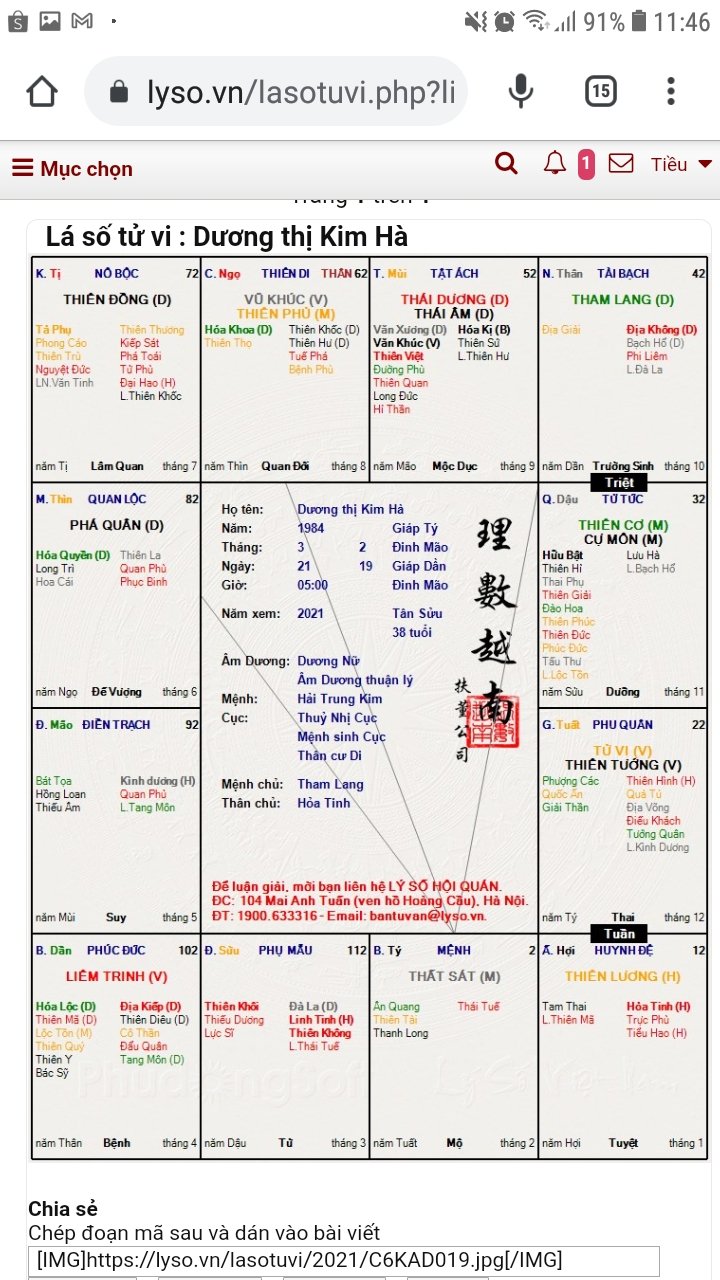 91% 11:46
lyso.vn/lasotuvi.php?li
15
Mục chọn
1
Tiều
Lá số tử vi : Dương thị Kim Hà
K. Tị NÔ BỘC 72
THIÊN ĐỒNG (D)
Tả Phụ
Phong Cáo
Thiên Trù
Nguyệt Đức
LN.Văn Tinh
Thiên Thương
Kiếp Sát
Phá Toái
Tử Phù
Đại Hao (H)
L.Thiên Khốc
năm Tị Lâm Quan tháng 7
C. Ngọ THIÊN DI THÂN 62
VŨ KHÚC (V)
THIÊN PHỦ (M)
Hóa Khoa (D)
Thiên Thọ
Thiên Khốc (D)
Thiên Hư (D)
Tuế Phá
Bệnh Phù
năm Thìn Quan Đới tháng 8
T. Mùi TẬT ÁCH 52
THÁI DƯƠNG (D)
THÁI ÂM (D)
Văn Xương (D)
Văn Khúc (V)
Thiên Việt
Đường Phù
Thiên Quan
Long Đức
Hỉ Thần
Hóa Kị (B)
Thiên Sứ
L.Thiên Hư
năm Mão Mộc Dục tháng 9
N. Thân TÀI BẠCH 42
THAM LANG (D)
Địa Giải
Địa Không (D)
Bạch Hổ (D)
Phi Liêm
L.Đà La
năm Dần Trường Sinh tháng 10
Triệt
M. Thìn QUAN LỘC 82
PHÁ QUÂN (D)
Hóa Quyền (D)
Long Trì
Hoa Cái
Thiên La
Quan Phù
Phục Binh
năm Ngọ Đế Vượng tháng 6
Họ tên: Dương thị Kim Hà
Năm: 1984 Giáp Tý
Tháng: 3 2 Đinh Mão
Ngày: 21 19 Giáp Dần
Giờ: 05:00 Đinh Mão
Năm xem: 2021 Tân Sửu
38 tuổi
Âm Dương: Dương Nữ
Âm Dương thuận lý
Mệnh: Hải Trung Kim
Cục: Thuỷ Nhị Cục
Mệnh sinh Cục
Thân cư Di
Mệnh chủ: Tham Lang
Thân chủ: Hỏa Tinh
理數越南
扶董公司
Để luận giải, mời bạn liên hệ LÝ SỐ HỘI QUÁN.
ĐC: 104 Mai Anh Tuấn (ven hồ Hoàng Cầu), Hà Nội.
ĐT: 1900.633316 - Email: bantuvan@lyso.vn.
Q. Dậu TỬ TỨC 32
THIÊN CƠ (M)
CỰ MÔN (M)
Hữu Bật
Thiên Hỉ
Thai Phụ
Thiên Giải
Đào Hoa
Thiên Phúc
Thiên Đức
Phúc Đức
Tấu Thư
L.Lộc Tồn
Lưu Hà
L.Bạch Hổ
năm Sửu Dưỡng tháng 11
Đ. Mão ĐIỀN TRẠCH 92
Bát Tọa
Hồng Loan
Thiếu Âm
Kình dương (H)
Quan Phủ
L.Tang Môn
năm Mùi Suy tháng 5
G. Tuất PHU QUÂN 22
TỬ VI (V)
THIÊN TƯỚNG (V)
Phượng Các
Quốc Ấn
Giải Thần
Thiên Hình (H)
Quả Tú
Địa Võng
Điếu Khách
Tướng Quân
L.Kình Dương
năm Tý Thai tháng 12
Tuần
B. Dần PHÚC ĐỨC 102
LIÊM TRINH (V)
Hóa Lộc (D)
Thiên Mã (D)
Lộc Tồn (M)
Thiên Quý
Thiên Y
Bác Sỹ
Địa Kiếp (D)
Thiên Diêu (D)
Cô Thần
Đẩu Quân
Tang Môn (D)
năm Thân Bệnh tháng 4
Đ. Sửu PHỤ MẪU 112
Thiên Khôi
Thiếu Dương
Lực Sĩ
Đà La (D)
Linh Tinh (H)
Thiên Không
L.Thái Tuế
năm Dậu Tử tháng 3
B. Tý MỆNH 2
THẤT SÁT (M)
Ân Quang
Thiên Tài
Thanh Long
Thái Tuế
năm Tuất Mộ tháng 2
Ấ. Hợi HUYNH ĐỆ 12
THIÊN LƯƠNG (H)
Tam Thai
L.Thiên Mã
Hỏa Tinh (H)
Trực Phù
Tiểu Hao (H)
năm Hợi Tuyệt tháng 1
Chia sẻ
Chép đoạn mã sau và dán vào bài viết
[IMG]https://lyso.vn/lasotuvi/2021/C6KAD019.jpg[/IMG]